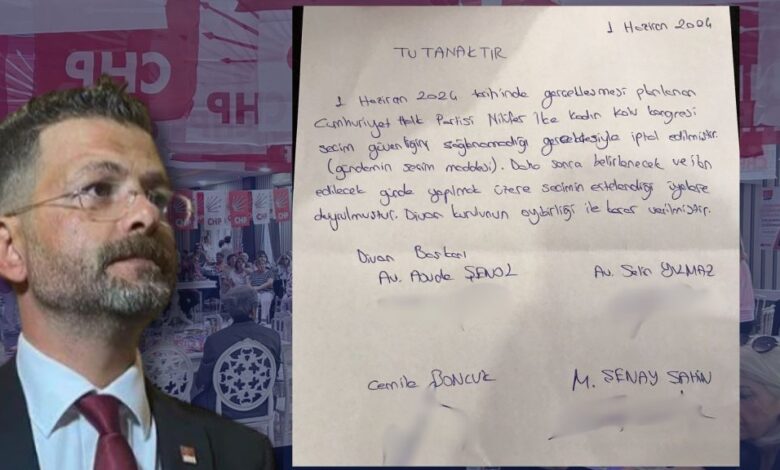 CHP
CHP
CHP
1 Haziran 2024
TUTANAKTIR
1 Haziran 2024 tarihinde gerçekleşmesi planlanan
Cumhuriyet Halk Partisi Nilüfer İlçe kadın kolu kongresi
seçim güvenliğini sağlanamadığı gerekçesiyle iptal edilmiştir.
(gündemin seçim maddesi). Daha sonra belirlenecek ve ilan
edilecek günde yapılmak üzere seçimin ertelendiği üyelere
duyrulmuştur. Divan kurulunun oybirliği ile karar verilmiştir.
Divan Başkanı
Av. ŞENOL Av. Selin YILMAZ
Cemile BONCUK M. ŞENAY ŞAHİN